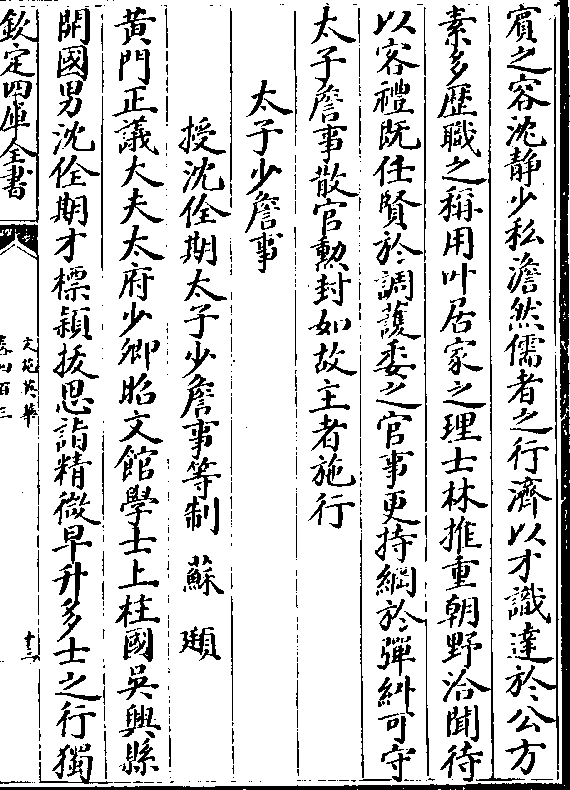 賔之容沈静少私澹然儒者之行濟以才識達於公方
素多歴職之稱用叶居家之理士林推重朝野洽聞待
以客禮既任賢於調䕶委之官事更持綱於彈糾可守
太子詹事散官勲封如故主者施行
太子少詹事
授沈佺期太子少詹事等制 蘇頲
黄門正議大夫太府少卿昭文館學士上柱國吳興縣
開國男沈佺期才標穎拔思詣精微早升多士之行獨
欽定四庫全書
文苑英華
卷四百三
十三